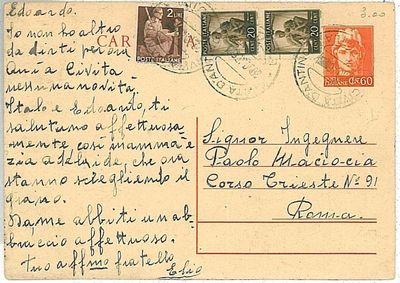 Edoardo.
Io non ho altro
da dirti per ora
Qui a Civita
nessuna novità.
Italo e Edoardo, ti
salutano affettuosa-
mente, così mamma e
zia Adelaide, che ora
stanno scegliendo il
grano.
Da me abbiti un ab-
braccio affettuoso.
Tuo affmo fratello
Elio
CARTOLINA
2 LIRE
POSTE ITALIANE
POSTE ITALIANE
CENT. 20
POSTE ITALIANE
CENT. 20
CIVITA D'ANTINO
60
3.00
Signor Ingegnere
Paolo Maciocia
Corso Trieste Nº 91
Roma.